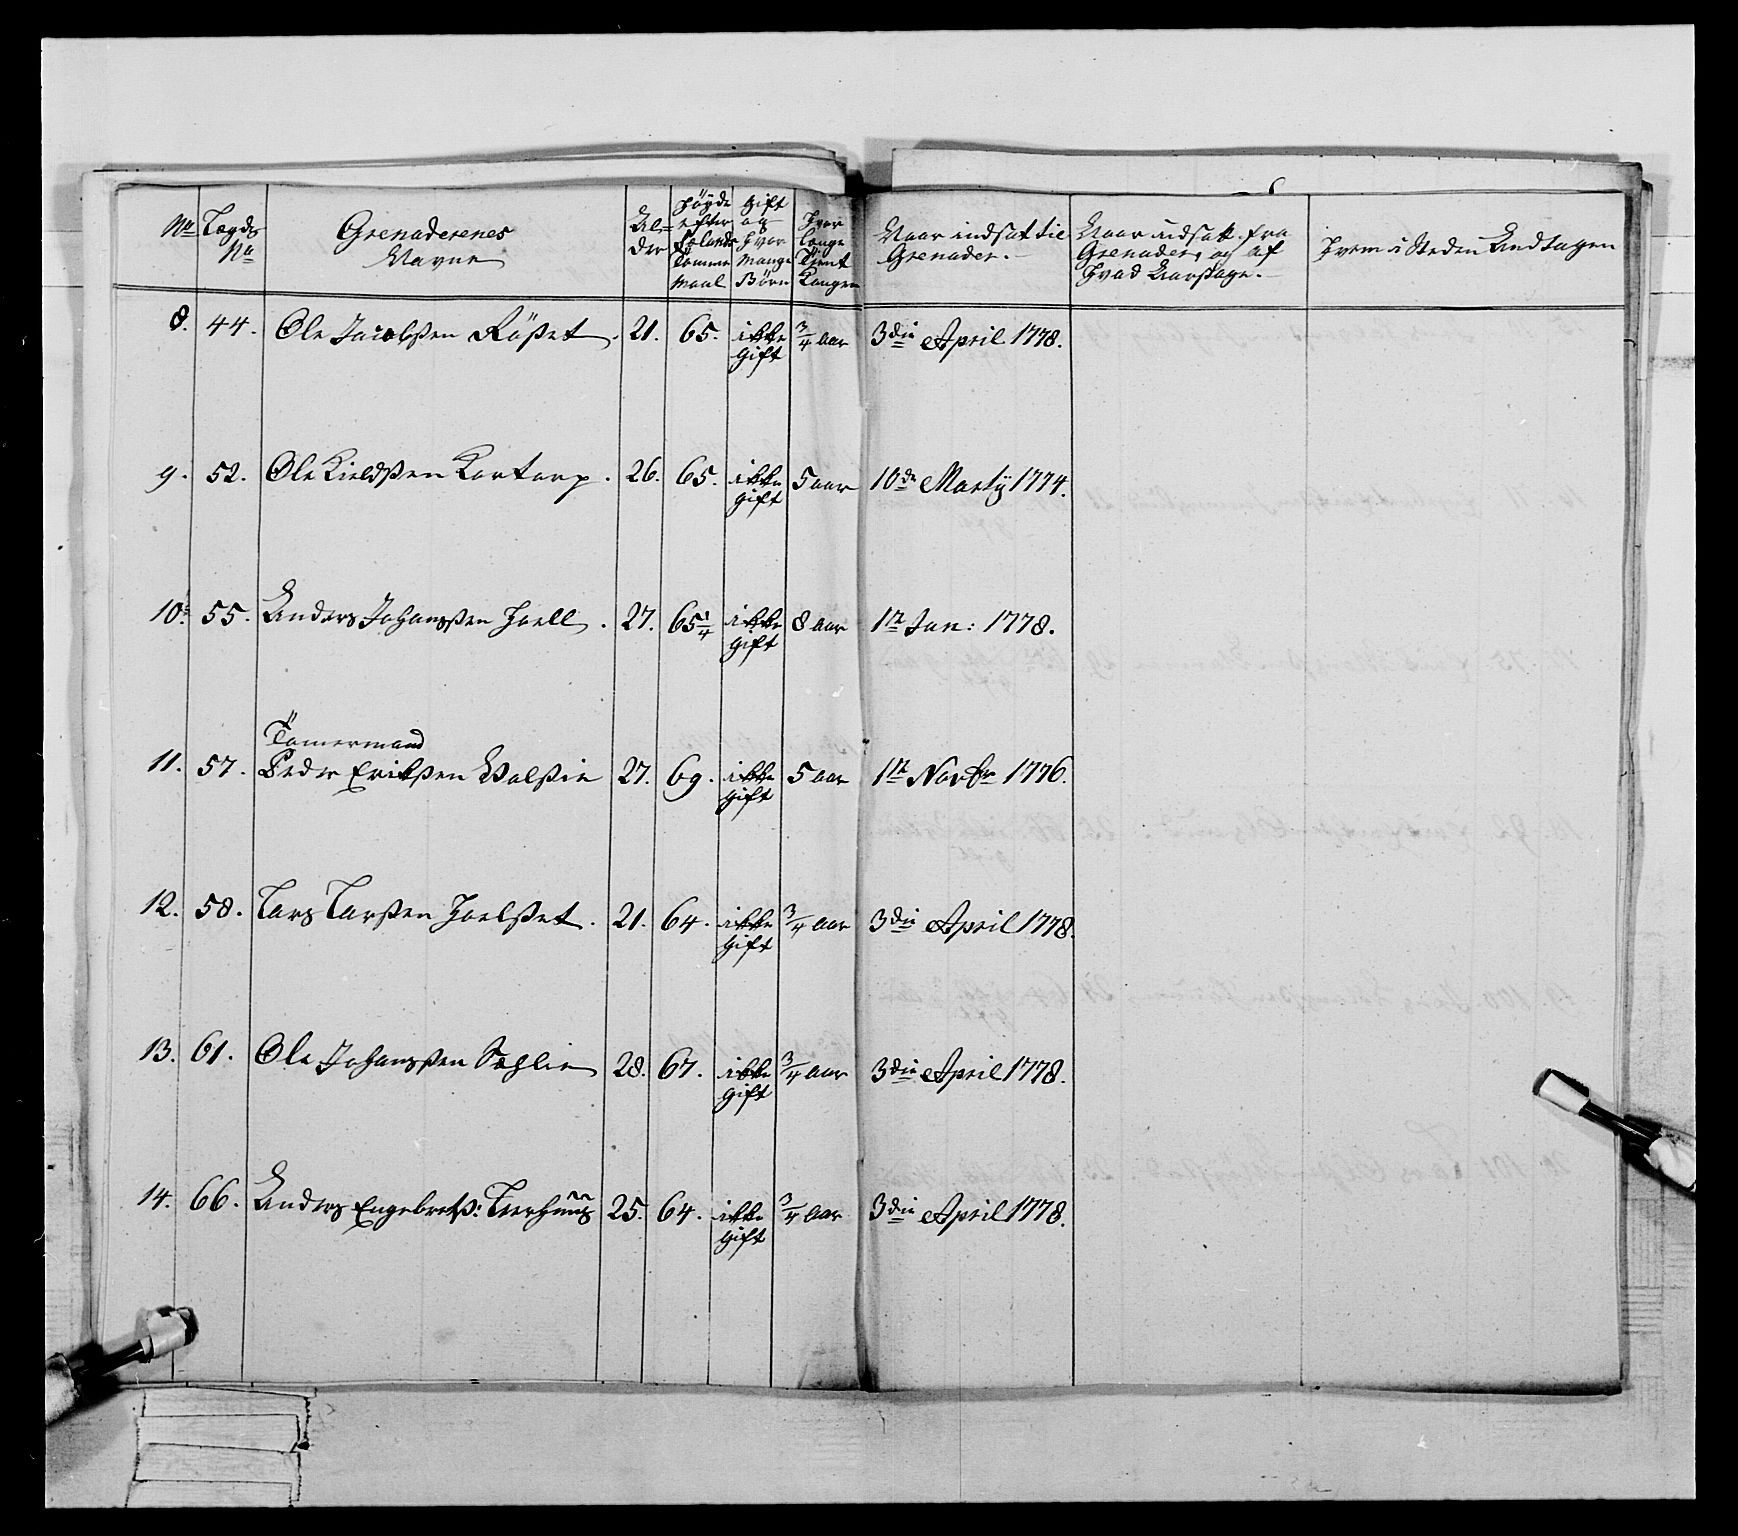 No Lægds No Grenaderenes Navne Al= der Höyde efter Sælands Tomme Maal Gift og Hvor Mange Börn Hvor længe Tient Kongen Naar indsat til Grenader. Naar udsatt fra Grenader, og af Hvad Aarsage. Hvem i Steden Andtagen
8. 44. Ole Jacobßen Rößet. 21. 65. ikke gift 3/4 aar 3die April 1778.
9. 52. Ole Kieldßen Kortorp. 26. 65. ikke gift 5 aar 10de Marty 1774.
10. 55. Anders Johanßen Hoell. 27. 65 1/4 ikke gift 8 aar 1te Jan: 1778.
Tömermand
11. 57. Peder Erikßen Wolßie 27. 69. ikke gift 5 aar 1te Novbr 1776.
12. 58. Lars Larßen Hoelßet. 21. 64. ikke gift 3/4 aar 3die April 1778.
13. 61. Ole Johanßen Sæhlie 28. 67. ikke gift 3/4 aar 3die April 1778.
14. 66. Anders Engebretß: Leerhuus 25. 64. ikke gift 3/4 aar 3die April 1778.